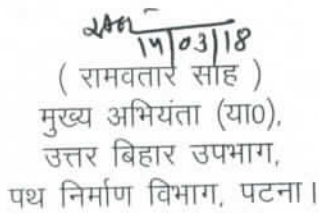 14/03/18
( रामवतार साह )
मुख्य अभियंता (या0),
उत्तर बिहार उपभाग,
पथ निर्माण विभाग, पटना।